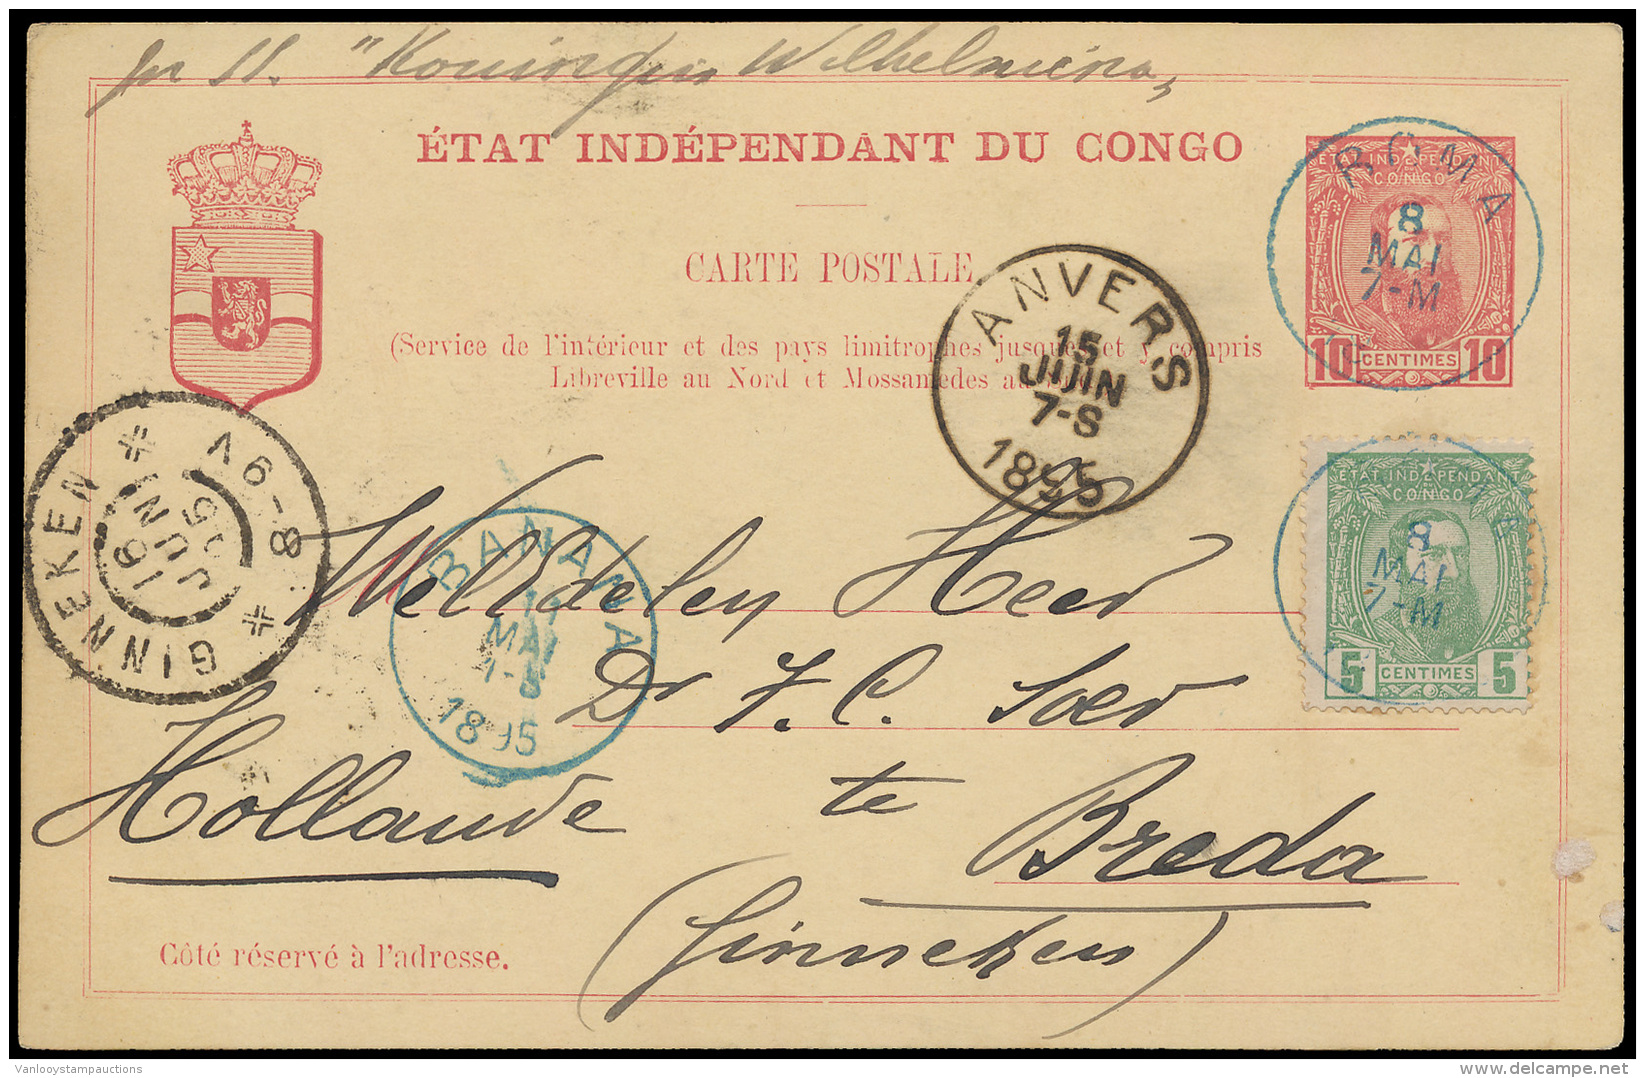 pr SS. "Koningin Wilhelmina,
ÉTAT INDÉPENDANT DU CONGO
CARTE POSTALE
(Service de l'intérieur et des pays limitrophes jusques et y compris
Libreville au Nord et Mossamedes au
ÉTAT INDÉPENDANT DU
CONGO
10 CENTIMES 10
BOMA
8
MAI
7-M
ANVERS
15
JUIN
7-S
1895
ÉTAT INDÉPENDANT DU
CONGO
5 CENTIMES 5
8
MAI
7-M
GINNEKEN
16
JUNI
95
8-9V
BANANA
MAI
1895
Weledelen Heer
Dr F. C. Soer
te Breda
Hollande
(Ginneken)
Côté réservé à l'adresse.
Vanlooystampauctions
delcampe.net